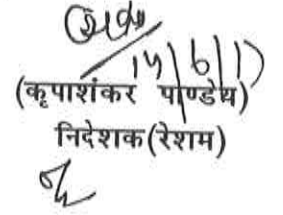 14/6/17
(कृपाशंकर पाण्डेय)
निदेशक(रेशम)